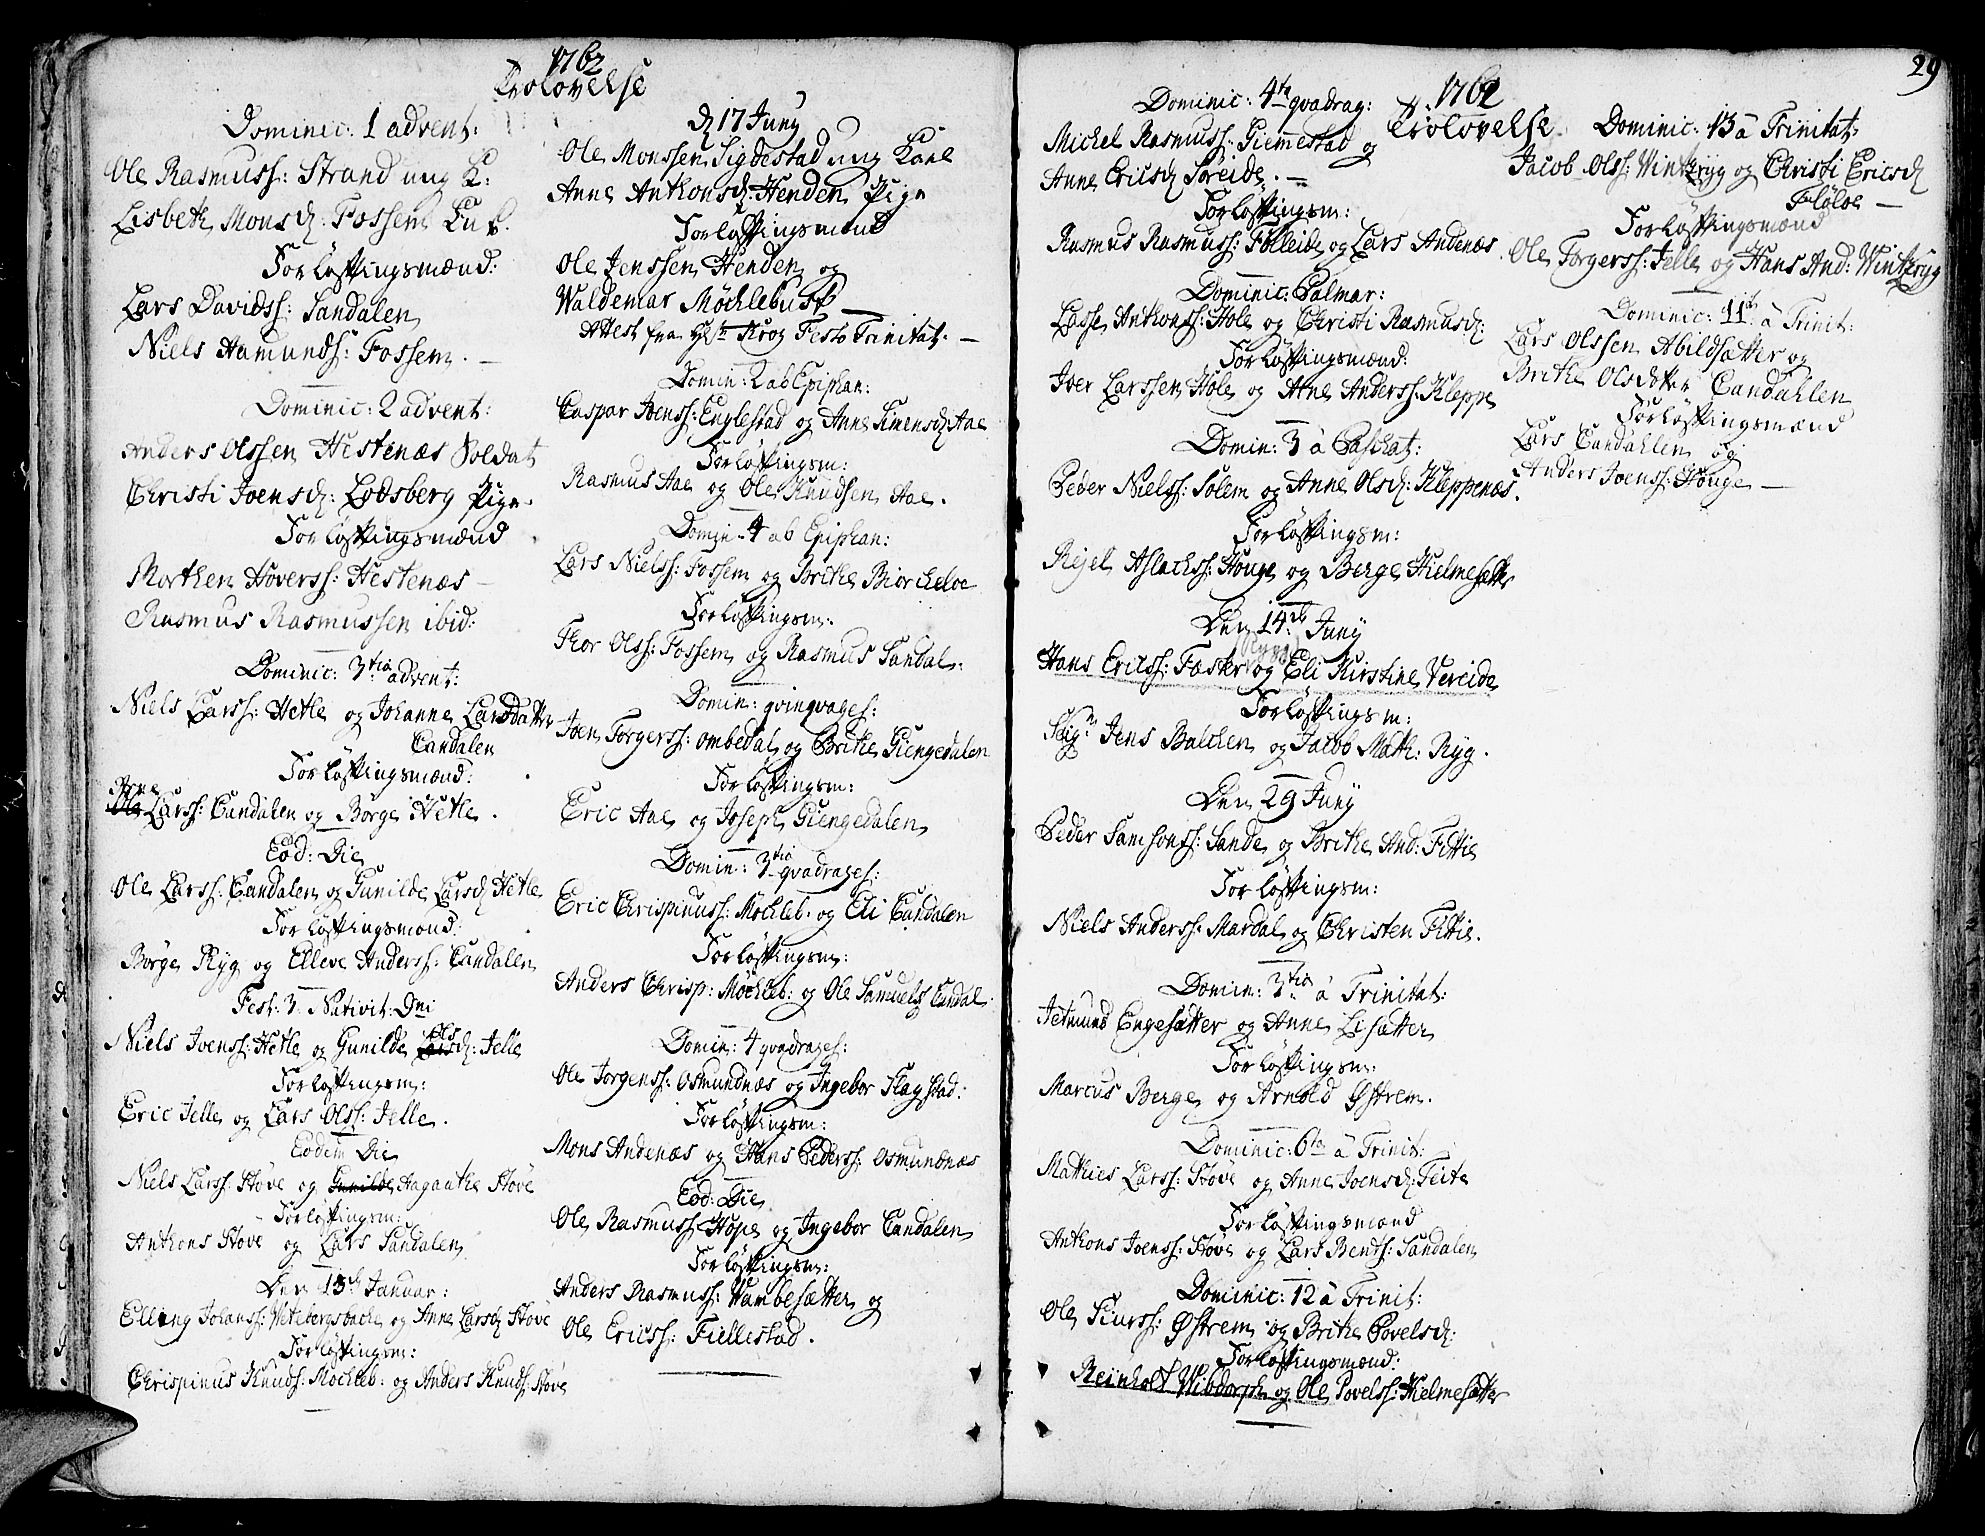 1762
Trolovelse
Dominic: 1 advent:
Ole Rasmuss: Strand ung K:
Lisbeth Monsd: Fossem
Forløftingsmænd:
Lars Davidss: Sandalen
Niels Hamunds: Fossem. —
Dominic: 2 advent:
Anders Olssen Hestenæs Soldat
Christi Joensd: Lodsberg Pige.
Forløftingsmænd
Morthen Hoverss: Hestenæs —
Rasmus Rasmussen ibid:
Dominic: 3tia advent:
Niels Larss: Hetle og Johanne Larsdatter
Candalen
Forløftingsmænd:
Arne
Ole Larss: Candalen og Børge Hetle.
Eod: Die
Ole Larss: Candalen og Gunilde Larsd Hetle
Forløftingsmænd:
Børge Ryg og Elleve Anderss: Candalen
Fest: 3 Nativit: Dni
Niels Joenss: Hetle og Gunilde Larsd: Ols Jelle
Forløftingsm:
Eric Jelle og Lars Olss: Jelle.
Eodem Die
Niels Larss: Støve og Gunilde Aagaathe Støve
Forløftingsm:
Anthons Støve og Lars Sandalen
Den 13de Januar:
Elling Johanss: Vitebergsbache og Anne Larsd: Støve
Forløftingsm:
Chrispinus Knuds: Mochleb: og Anders Knuds: Støve
d 17 Juny
Ole Monssen Sigdestad ung Karl
Anne Anthonsd: Henden Pige
Forløftingsmænd
Ole Jenssen Henden og
Waldemar Møchlebust —
Attest fra Hr Krog Festo Trinitat. —
Domin: 2 ab Epiphan:
Caspar Joenss: Englestad og Anne Simensd: Aae
Forløftingsm:
Rasmus Aae og Ole Knudsen Aae.
Domin: 4 ab Epiphan:
Lars Nielss: Fossem og Brithe Biorchelve
Forløftingsm:
Thor Olss: Fossem og Rasmus Sandal:
Domin: qvinqvages:
Joen Torgerss: Ombedal og Brithe Giengedalen
Forløftingsm:
Eric Aae og Joseph Giengedalen
Domin: 3tia qvadrages:
Eric Chrispinuss: Mochleb: og Eli Candalen
Forløftingsm:
Anders Chrisp: Mochleb: og Ole Samuels Candal:
Domin: 4 qvadrages:
Ole Jorgenss: Osmundnæs og Ingebor Flagstad:
Forløftingsm:
Mons Andenæs og Hans Pederss: Osmundnæs
Eod: Die
Ole Rasmuss: Hope og Ingebor Candalen
Forløftingsm:
Anders Rasmuss: Wambesætter og
Ole Ericss: Fiellestad.
29
1762
Trolovelse
Dominic: 4ta qvadrag:
Michel Rasmuss: Giemestad og
Anne Ericsd Søreide. —
Forløftingsm:
Rasmus Rasmuss: Følleide og Lars Andenæs
Dominic: Palmar:
Lasse Anthonss: Hole og Christi Rasmusd:
Forløftingsmænd:
Iver Larssen Hole og Arne Anderss: Kleppe
Domin: 3 à Paschat:
Peder Nielss: Solem og Anne Olsd: Kleppenæs.
Forløftingsm:
Rejel Aslachss: Houge og Berge Hielmesætter
Den 14de Juny
Ryg
Hans Ericss: Faster og Eli Kirstine Vereide
Forløftingsm:
Jens Balchen og Jacob Math: Ryg.
Den 29 Juny
Peder Samsonss: Sande og Brithe And: Fittie
Forløftingsm:
Niels Anderss: Mardal og Christen Fittie.
Domin: 3tia à Trinitat:
Jetmund Engesætter og Anne Lisætter
Forløftingsm:
Marcus Berge og Arnold Østrem.
Dominic: 6ta à Trinit:
Mathies Larss: Støve og Anne Joensd: Feite
Forløftingsmænd
Anthons Joenss: Støve og Lars Bents: Sandalen
Dominic: 12 à Trinit:
Ole Siurss: Østrem og Brithe Povelsd:
Forløftingsmænd:
Reinholt Wibdorph og Ole Povelss: Hielmesætter
Dominic: 13 à Trinitat:
Jacob Olss: Wintzryg og Christi Ericsd
Fløloe —
Forløftingsmænd
Ole Torgerss: Jelle og Hans And: Wintzryg
Dominic: 11te à Trinit:
Lars Olssen Abildsætter og
Brithe Olsdotter Candahlen
Forløftingsmænd
Lars Candahlen og
Anders Joenss: Houge —